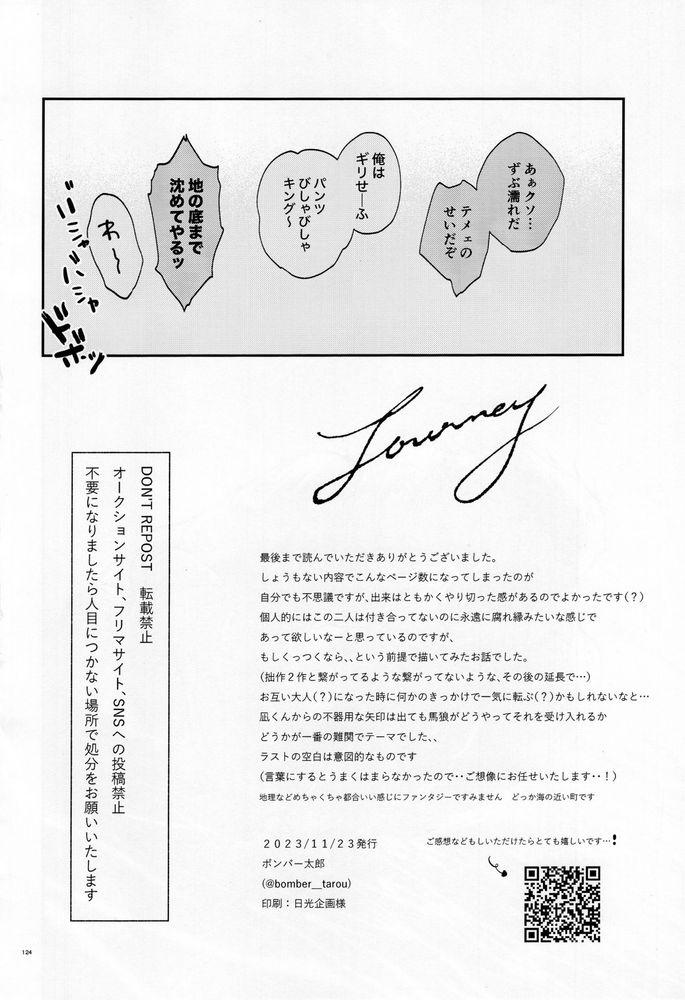 あぁクソ…
ずぶ濡れだ
テメェの
せいだぞ
俺は
ギリせーふ
パンツ
びしゃびしゃ
キング〜
地の底まで
沈めてやるッ
わ〜
バシャバシャ
ドボッ
Journey
最後まで読んでいただきありがとうございました。
しょうもない内容でこんなページ数になってしまったのが
自分でも不思議ですが、出来はともかくやり切った感があるのでよかったです(？)
個人的にはこの二人は付き合ってないのに永遠に腐れ縁みたいな感じで
あって欲しいなーと思っているのですが、
もしくっつくなら、、という前提で描いてみたお話でした。
(拙作２作と繋がってるような繋がってないような、その後の延長で…)
お互い大人(？)になった時に何かのきっかけで一気に転ぶ(？)かもしれないなと…
凪くんからの不器用な矢印は出ても馬狼がどうやってそれを受け入れるか
どうかが一番の難関でテーマでした、、
ラストの空白は意図的なものです
(言葉にするとうまくはまらなかったので‥ご想像にお任せいたします‥！)
地理などめちゃくちゃ都合いい感じにファンタジーですみません　どっか海の近い町です
２０２３/１１/２３発行
ボンバー太郎
(@bomber__tarou)
印刷：日光企画様
ご感想などもしいただけたらとても嬉しいです…！
DON'T REPOST　転載禁止
オークションサイト、フリマサイト、SNSへの投稿禁止
不要になりましたら人目につかない場所で処分をお願いいたします
124